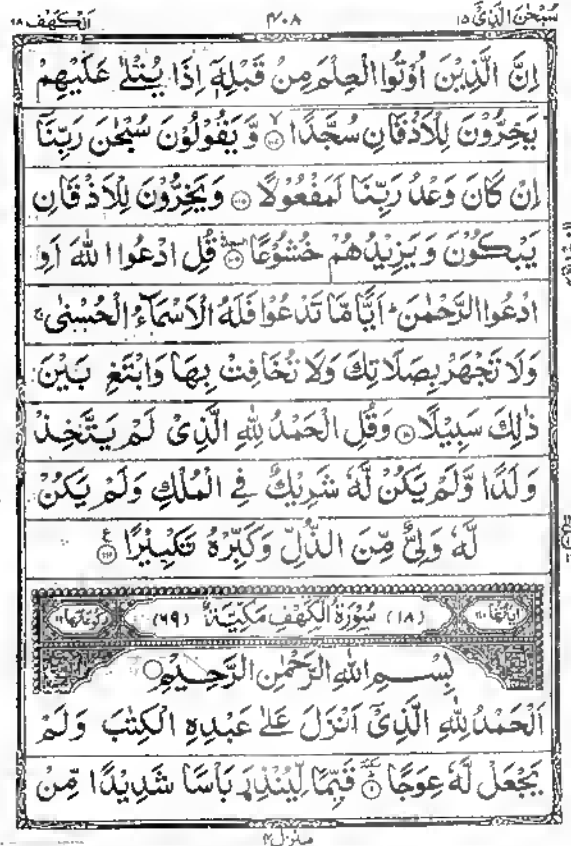 سُبْحٰنَ الَّذِيْٓ ۱۵ ۴۰۸ اَلْكَهْف ۱۸
اِنَّ الَّذِيْنَ اُوْتُوا الْعِلْمَ مِنْ قَبْلِهٖٓ اِذَا يُتْلٰى عَلَيْهِمْ
يَخِرُّوْنَ لِلْاَذْقَانِ سُجَّدًا ۙ﴿۱۰۷﴾ وَّيَقُوْلُوْنَ سُبْحٰنَ رَبِّنَآ
اِنْ كَانَ وَعْدُ رَبِّنَا لَمَفْعُوْلًا ﴿۱۰۸﴾ وَيَخِرُّوْنَ لِلْاَذْقَانِ
يَبْكُوْنَ وَيَزِيْدُهُمْ خُشُوْعًا ﴿۱۰۹﴾ السجدة قُلِ ادْعُوا اللّٰهَ اَوِ
ادْعُوا الرَّحْمٰنَ ؕ اَيًّا مَّا تَدْعُوْا فَلَهُ الْاَسْمَآءُ الْحُسْنٰى ۚ
وَلَا تَجْهَرْ بِصَلَاتِكَ وَلَا تُخَافِتْ بِهَا وَابْتَغِ بَيْنَ
ذٰلِكَ سَبِيْلًا ﴿۱۱۰﴾ وَقُلِ الْحَمْدُ لِلّٰهِ الَّذِيْ لَمْ يَتَّخِذْ
وَلَدًا وَّلَمْ يَكُنْ لَّهٗ شَرِيْكٌ فِي الْمُلْكِ وَلَمْ يَكُنْ
لَّهٗ وَلِيٌّ مِّنَ الذُّلِّ وَكَبِّرْهُ تَكْبِيْرًا ﴿۱۱۱﴾ ع
اٰيَاتُهَا ۱۱۰ (۱۸) سُوْرَةُ الْكَهْفِ مَكِّيَّةٌ (۶۹) رُكُوْعَاتُهَا ۱۲
بِسْمِ اللّٰهِ الرَّحْمٰنِ الرَّحِيْمِ
اَلْحَمْدُ لِلّٰهِ الَّذِيْٓ اَنْزَلَ عَلٰى عَبْدِهِ الْكِتٰبَ وَلَمْ
يَجْعَلْ لَّهٗ عِوَجًا ﴿۱﴾ سكتة قَيِّمًا لِّيُنْذِرَ بَاْسًا شَدِيْدًا مِّنْ
منزل ۴